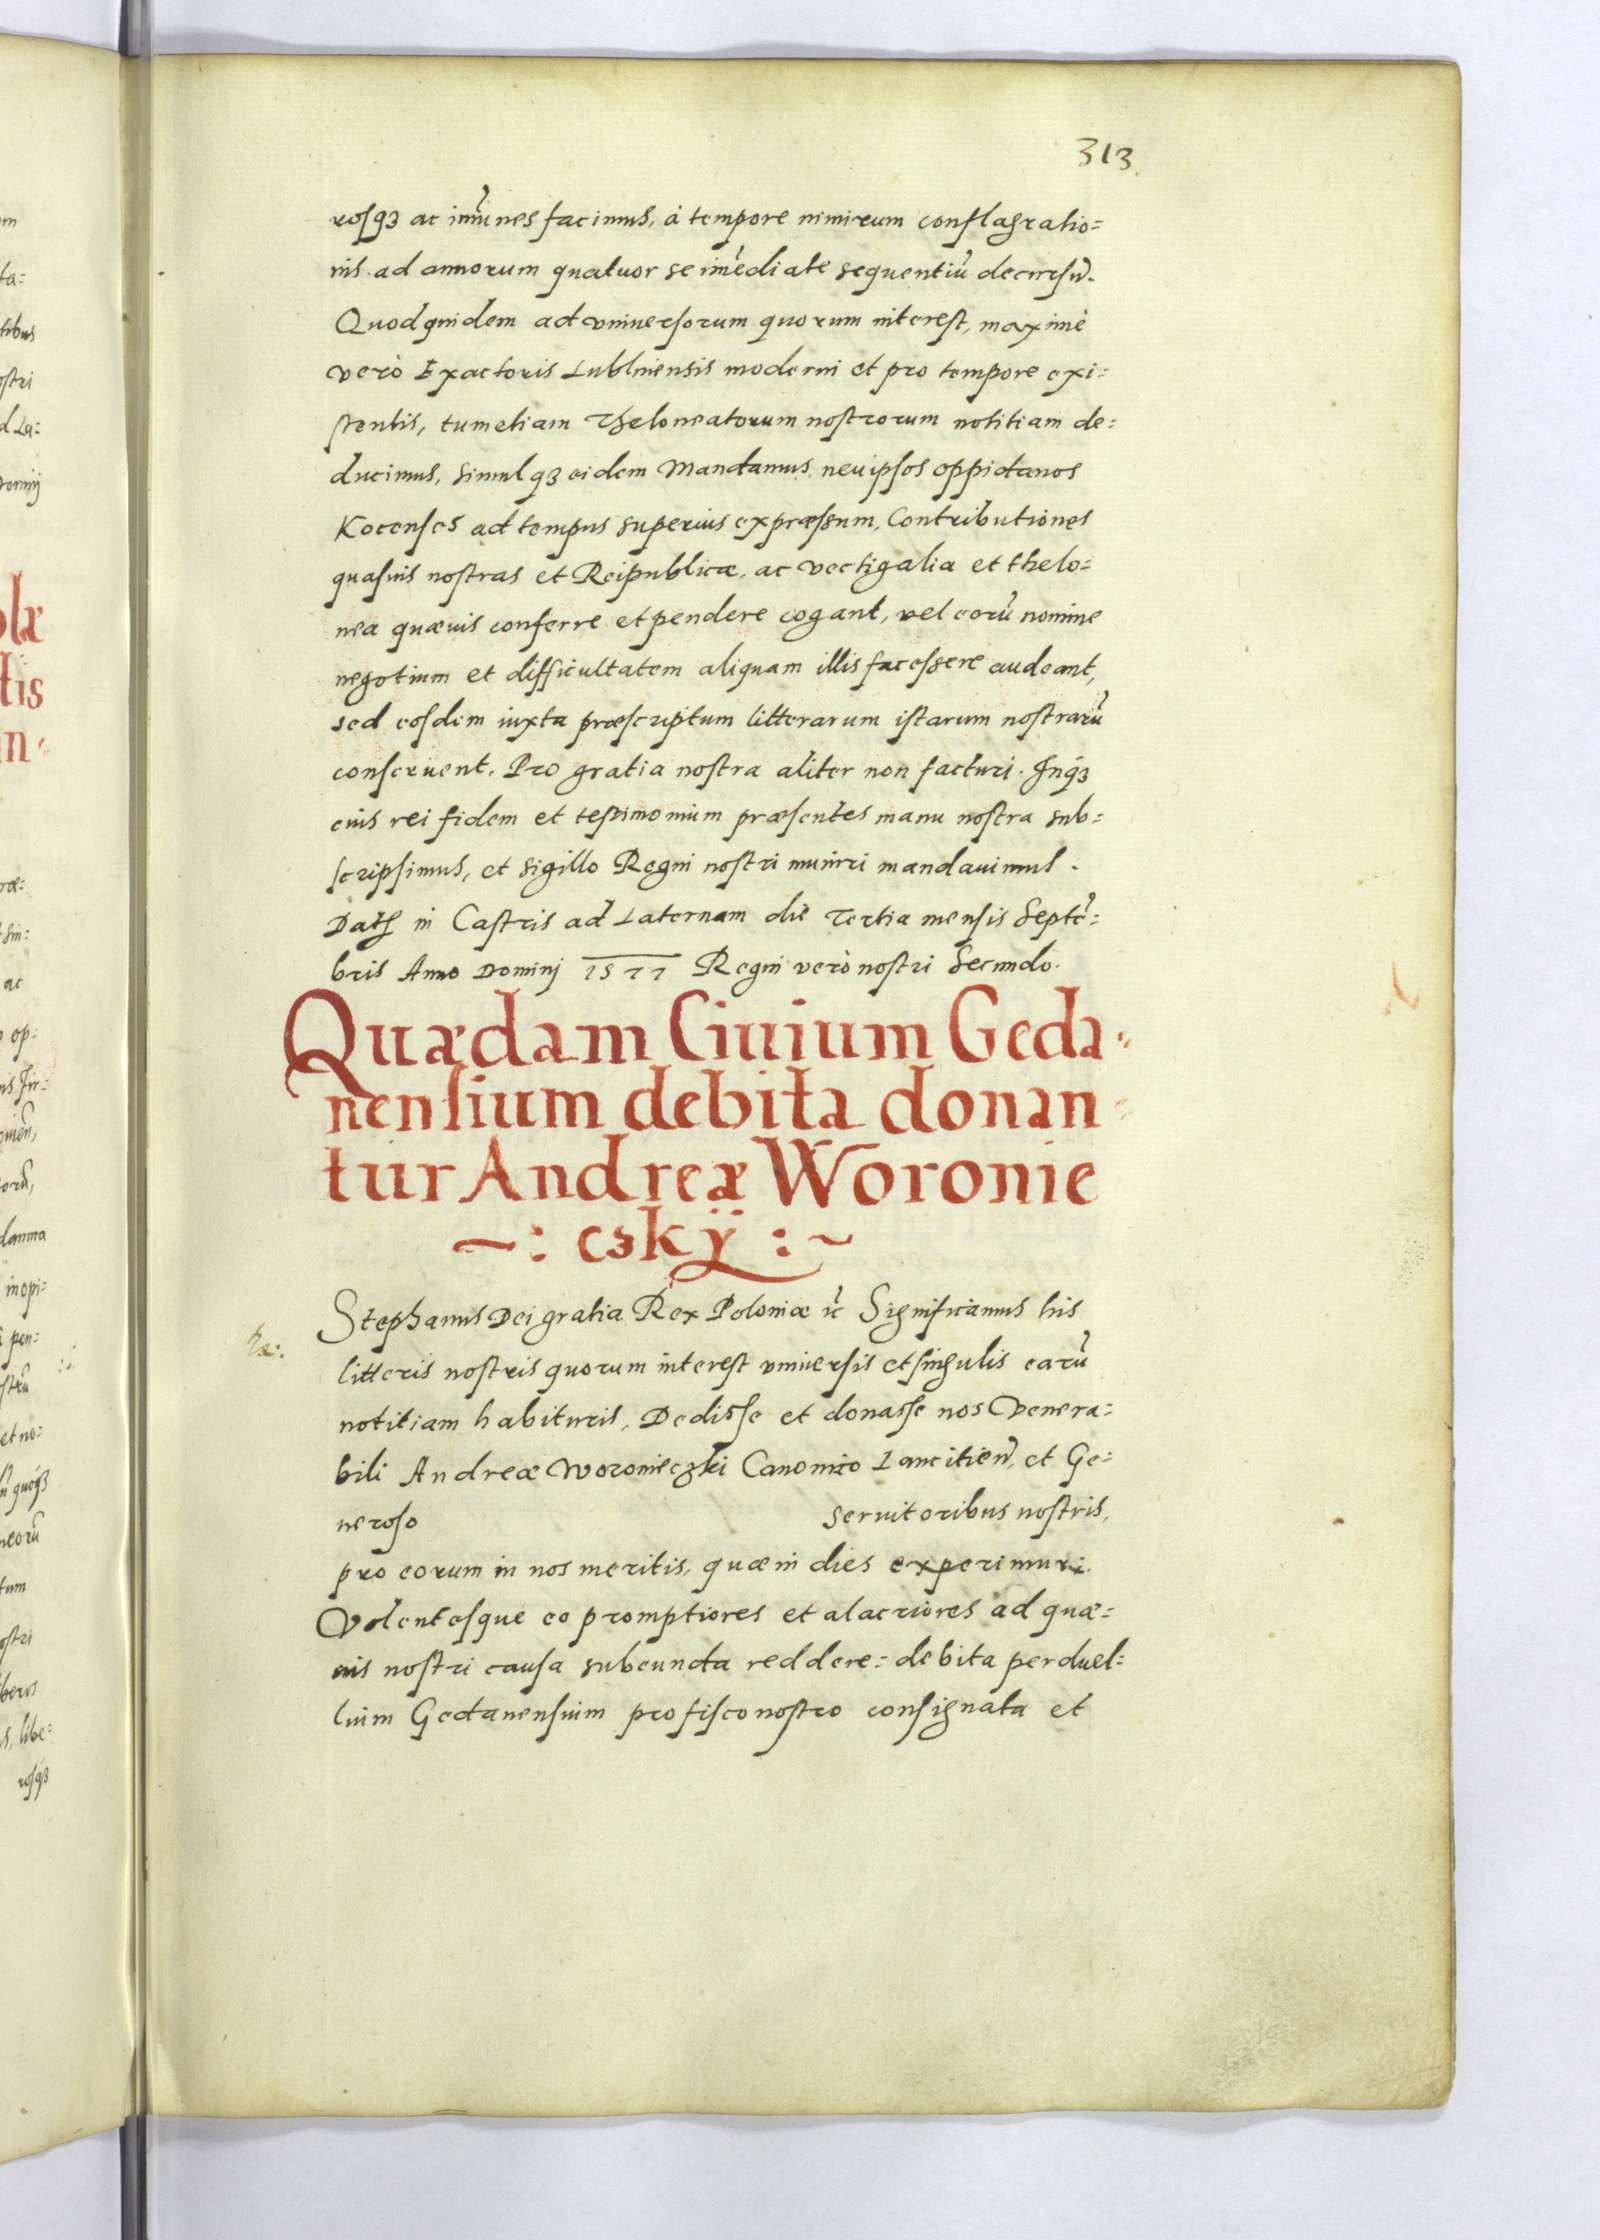 313
rosq3 ac im̃unes facimus, à tempore nimirum conflagratio=
nis ad annorum quatuor se im̃ediate sequentiũ decursũ.
Quodquidem ad vniuersorum quorum interest, maximè
verò Exactoris Lublinensis moderni et pro tempore exi=
stentis, tumetiam Theloneatorum nostrorum notitiam de=
ducimus, simulq3 eidem Mandamus, neuipsos oppidanos
Kocenses ad tempus superius expræssum, Contributiones
quasuis nostras et Reipublicæ, ac vectigalia et thelo=
nea quæuis conferre et pendere cogant, vel eorũ nomine
negotium et difficultatem aliquam illis facessere audeant,
sed eosdem iuxta præscriptum litterarum istarum nostrarũ
conseruent. Pro gratia nostra aliter non facturi. Inq3
eius rei fidem et testimonium præsentes manu nostra sub=
scripsimus, et sigillo Regni nostri muniri mandauimus.
in Castris ad Laternam die Tertia mensis Septẽ=
bris Anno Dominj 1577 Regni verò nostri Secundo.
Quædam Ciuium Geda=
nensium debita donan=
tur Andreæ Woronie
~: cskÿ :~
Stephanus Dei gratia Rex Poloniæ Significamus his
litteris nostris quorum interest vniuersis et singulis earũ
notitiam habituris, Dedisse et donasse nos Venera=
bili Andreæ Woronieczki Canonico Lancitień, et Ge=
neroso servitoribus nostris,
pro eorum in nos meritis, quæ in dies experimuri.
Volentesque eo promptiores et alacriores ad quæ=
uis nostri causa subeunda reddere: debita perduel=
lium Gedanensium pro fisco nostro consignata et